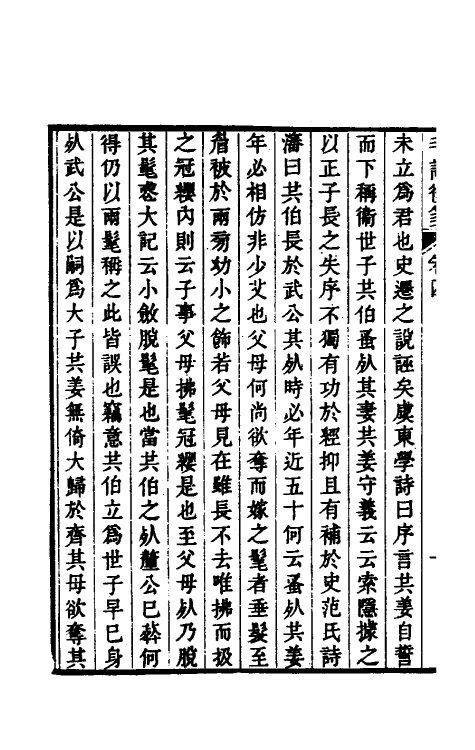 未立爲君也史遷之說誣矣虞東學詩曰序言共姜自誓
而下稱衞世子共伯蚤𣦸其妻共姜守義云云索隱據之
以正子長之失序不獨有功於經抑且有補於史范氏詩
瀋曰共伯長於武公其𣦸時必年近五十何云蚤𣦸共姜
年必相仿非少艾也父母何尚欲奪而嫁之髦者垂髮至
眉被於兩旁幼小之飾若父母見在雖長不去唯拂而扱
之冠纓內則云子事父母拂髦冠纓是也至父母𣦸乃脫
其髦喪大記云小斂脫髦是也當共伯之𣦸釐公已葬何
得仍以兩髦稱之此皆誤也竊意共伯立爲世子早已身
𣦸武公是以嗣爲大子共姜無倚大歸於齊其母欲奪其